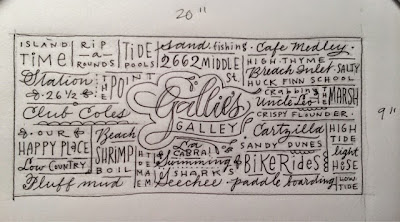 20"
ISLAND TIME
RIP -a- ROUNDS
TIDE POOLS
Sand fishing
Cafe Medley
2662 MIDDLE St.
HIGH THYME
Breach Inlet
SALTY
HUCK FINN SCHOOL
Station 26 1/2
THE POINT
Crabbing
THE MARSH
Uncle Leo
Club Coles
Gallie's
GALLEY
CRISPY FLOUNDER
9"
OUR HAPPY PLACE
Beach
SHRIMP BOIL
La CABRA!
Cartzilla
HIGH TIDE
SANDY DUNES
Low COUNTRY
Swimming
BikeRides
light HOUSE
SHARKS
Fluff mud
Seechee
paddle boarding
LOW TIDE